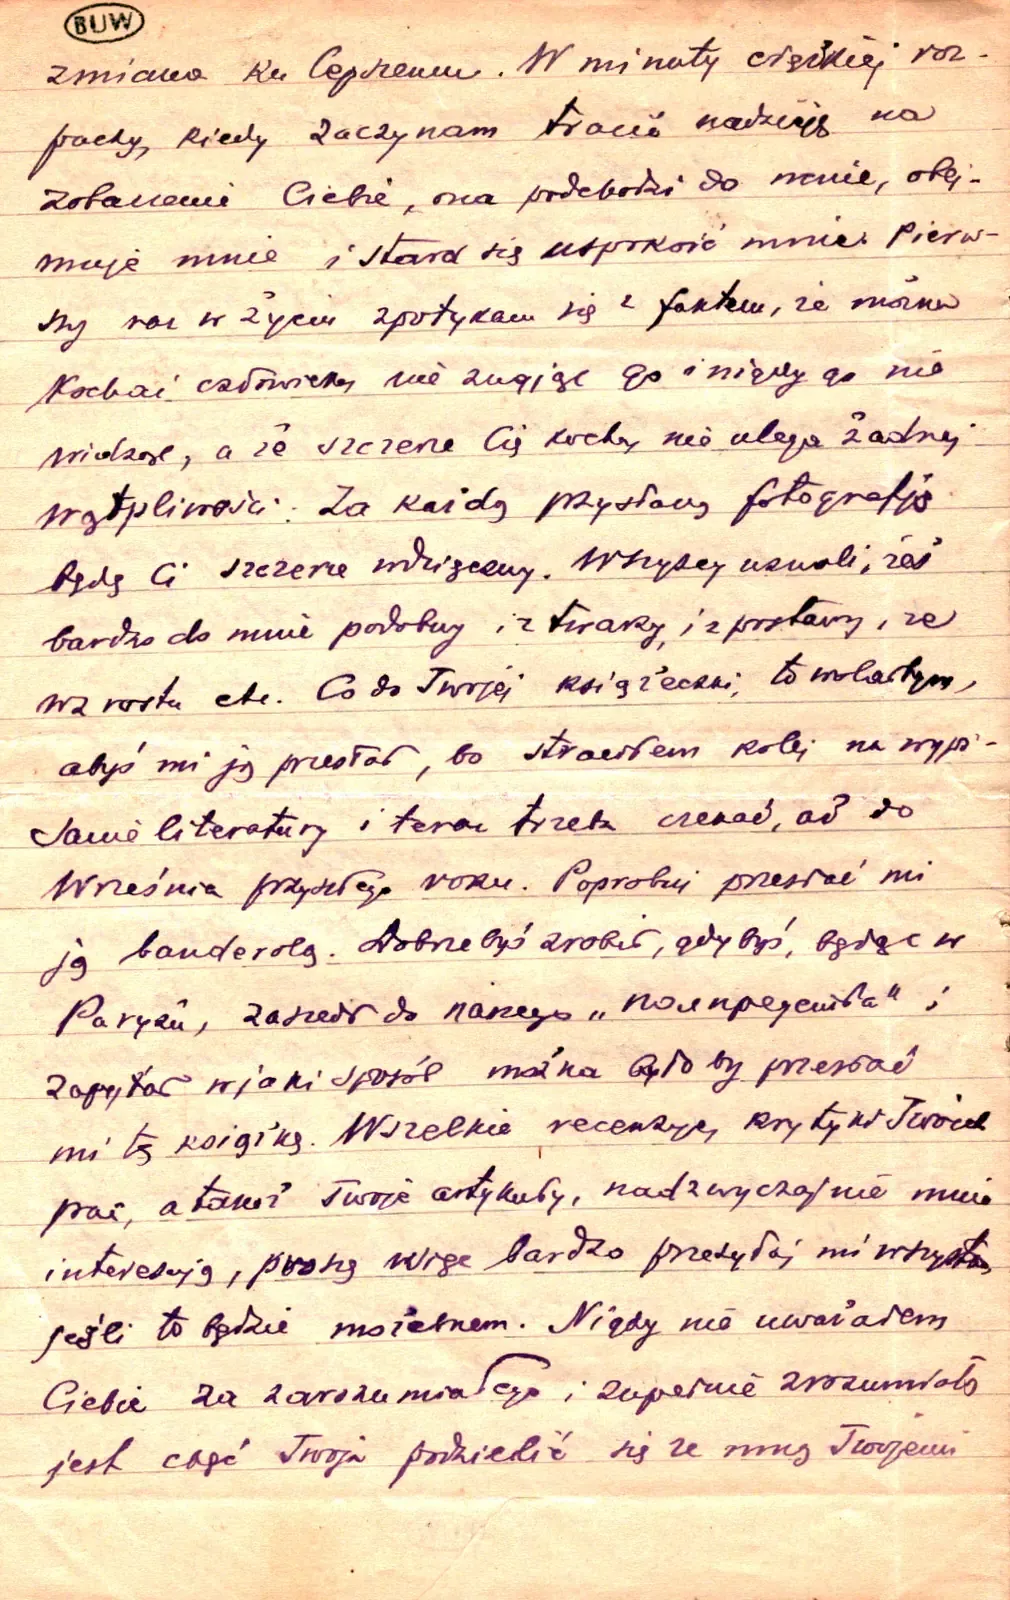 BUW
zmiana ku lepszemu. W minuty ciężkiej roz-
paczy, kiedy zaczynam tracić nadzieję na
zobaczenie Ciebie, ona podchodzi do mnie, obej-
muje mnie i stara się uspokoić mnie. Pierw-
szy raz w życiu spotykam się z faktem, że można
kochać człowieka, nie znając go i nigdy go nie
widząc, a że szczerze Cię kocha, nie ulega żadnej
wątpliwości. Za każdą przysłaną fotografję
będę Ci szczerze wdzięczny. Wszyscy uznali, żeś
bardzo do mnie podobny i z twarzy, i z postawy, ze
wzrostu etc. Co do Twojej książeczki, to wolałbym,
abyś mi ją przesłał, bo straciłem kolej na wypi-
sanie literatury i teraz trzeba czekać, aż do
Września przyszłego roku. Poprobuj przesłać mi
ją banderolą. Dobrze byś zrobił, gdybyś, będąc w
Paryżu, zaszedł do naszego „полпредства" i
zapytał w jaki sposób można było by przesłać
mi tę książkę. Wszelkie recenzye, krytyki Twoich
prac, a także Twoje artykuły, nadzwyczajnie mnie
interesują, proszę więc bardzo przesyłaj mi wszystko,
jeśli to będzie możebnem. Nigdy nie uważałem
Ciebie za zarozumiałego i zupełnie zrozumiałą
jest chęć Twoja podzielić się ze mną Twojemi